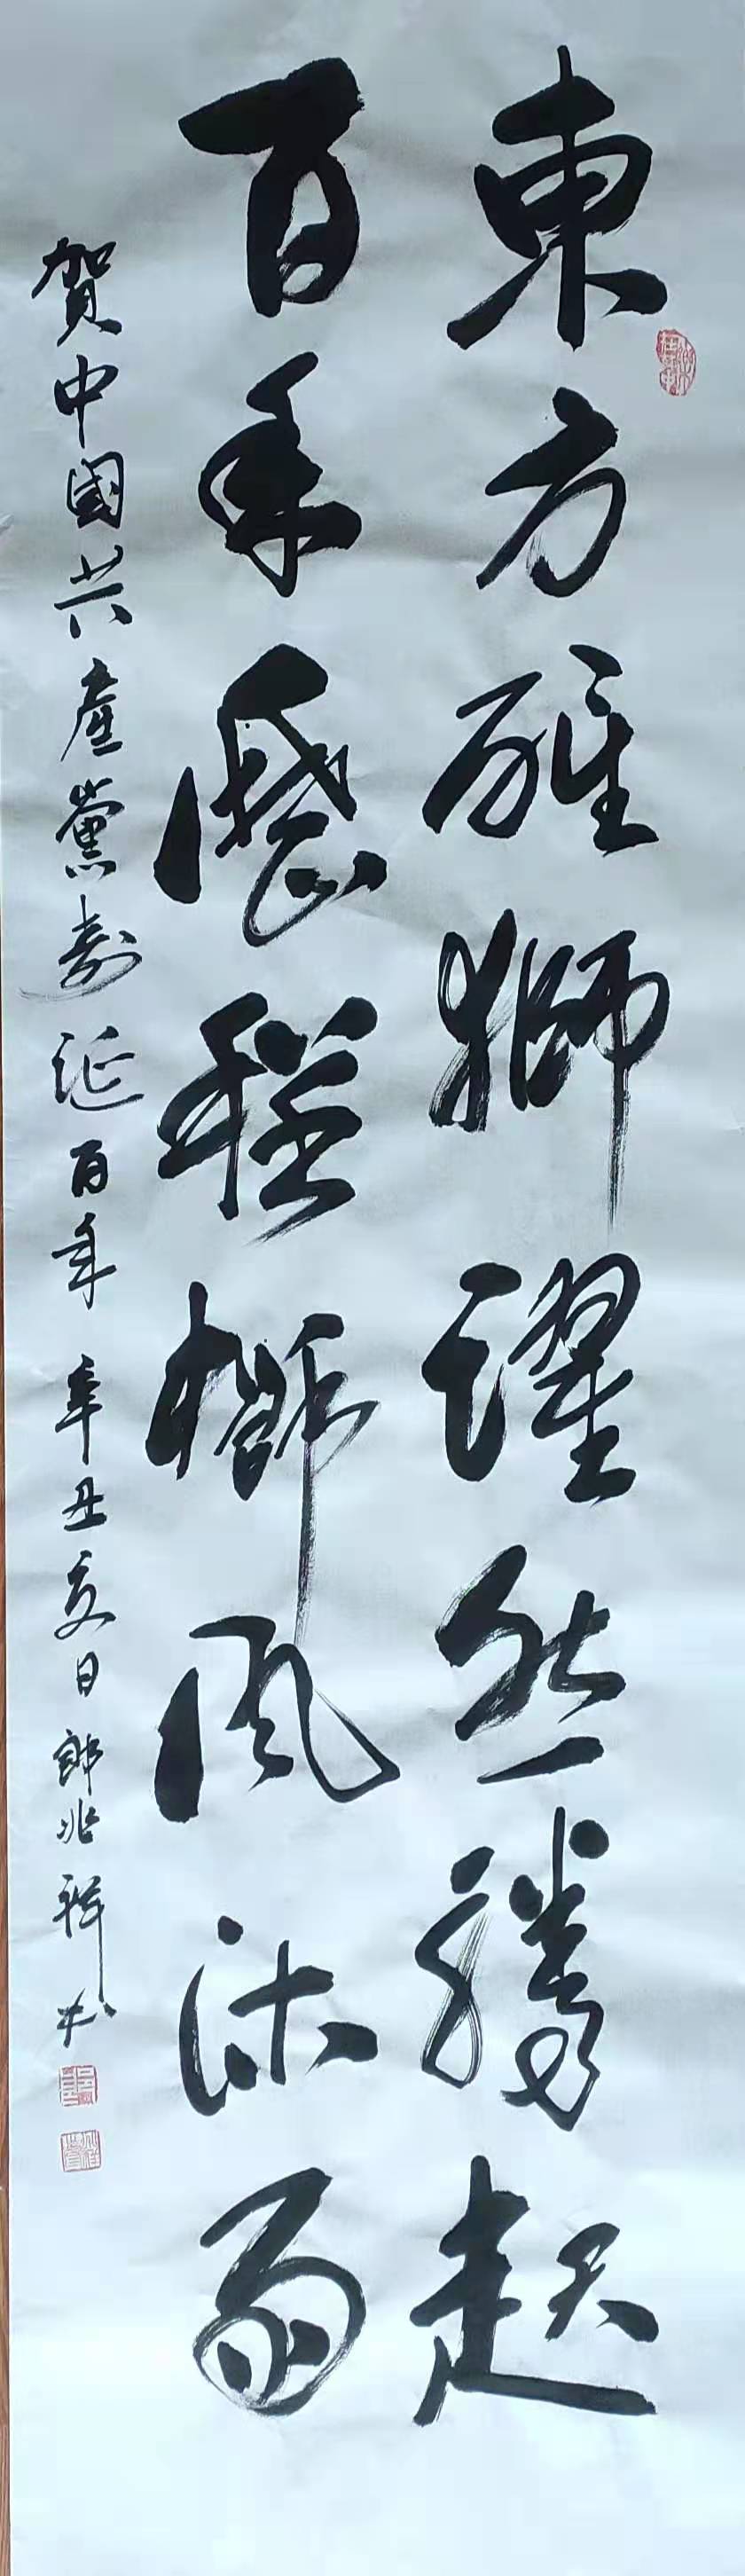 東方醒獅躍然騰起
百年歷程櫛風沐雨
賀中國共產黨壽誕百年 辛丑夏日 郎兆祥书